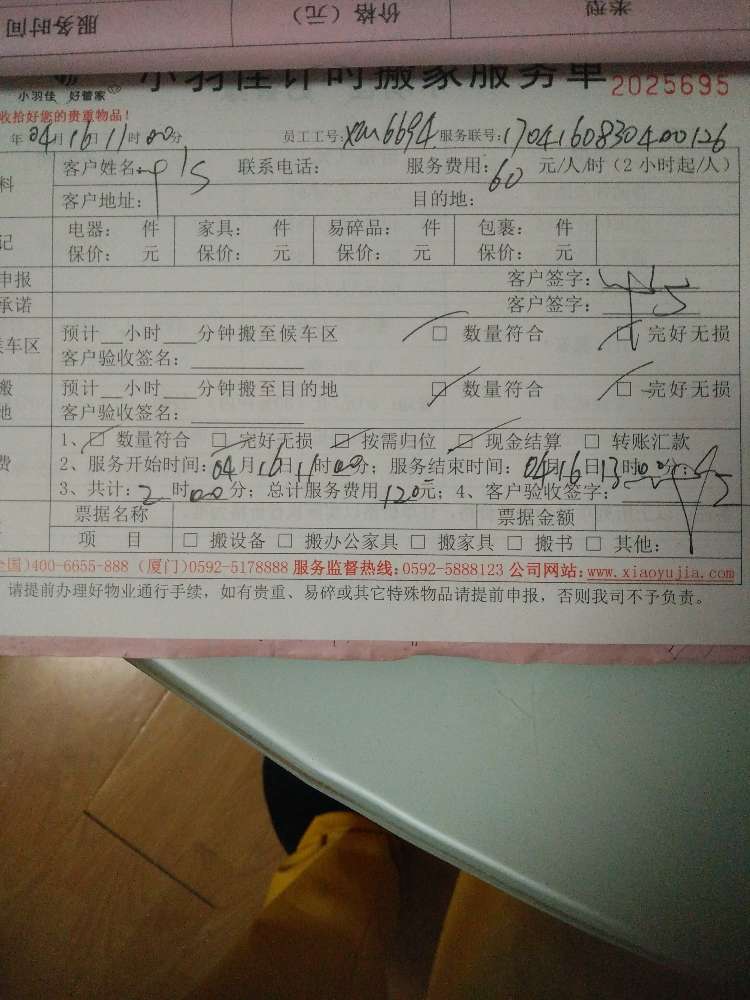 服务时间 价格（元） 类型
小羽佳 好管家
小羽佳计时搬家服务单 2025695
收拾好您的贵重物品!
年04月16日11时00分 员工工号:xm6694 服务联号:170416083040126
料 客户姓名: 联系电话: 服务费用:60元/人/时（2小时起/人）
客户地址: 目的地:
记 电器: 件 家具: 件 易碎品: 件 包裹: 件
保价: 元 保价: 元 保价: 元 保价: 元
申报 客户签字:
承诺 客户签字:
车区 预计__小时___分钟搬至候车区 □ 数量符合 □ 完好无损
客户验收签名:
搬 预计__小时___分钟搬至目的地 □ 数量符合 □ 完好无损
地 客户验收签名:
1、□ 数量符合 □ 完好无损 □ 按需归位 □ 现金结算 □ 转账汇款
费 2、服务开始时间:04月16日11时00分; 服务结束时间:04月16日13时00分;
3、共计:2时00分; 总计服务费用120元; 4、客户验收签字:
票据名称 票据金额
项 目 □ 搬设备 □ 搬办公家具 □ 搬家具 □ 搬书 □ 其他:
国)400-6655-888 (厦门)0592-5178888 服务监督热线:0592-5888123 公司网站:www.xiaoyujia.com
请提前办理好物业通行手续，如有贵重、易碎或其它特殊物品请提前申报，否则我司不予负责。